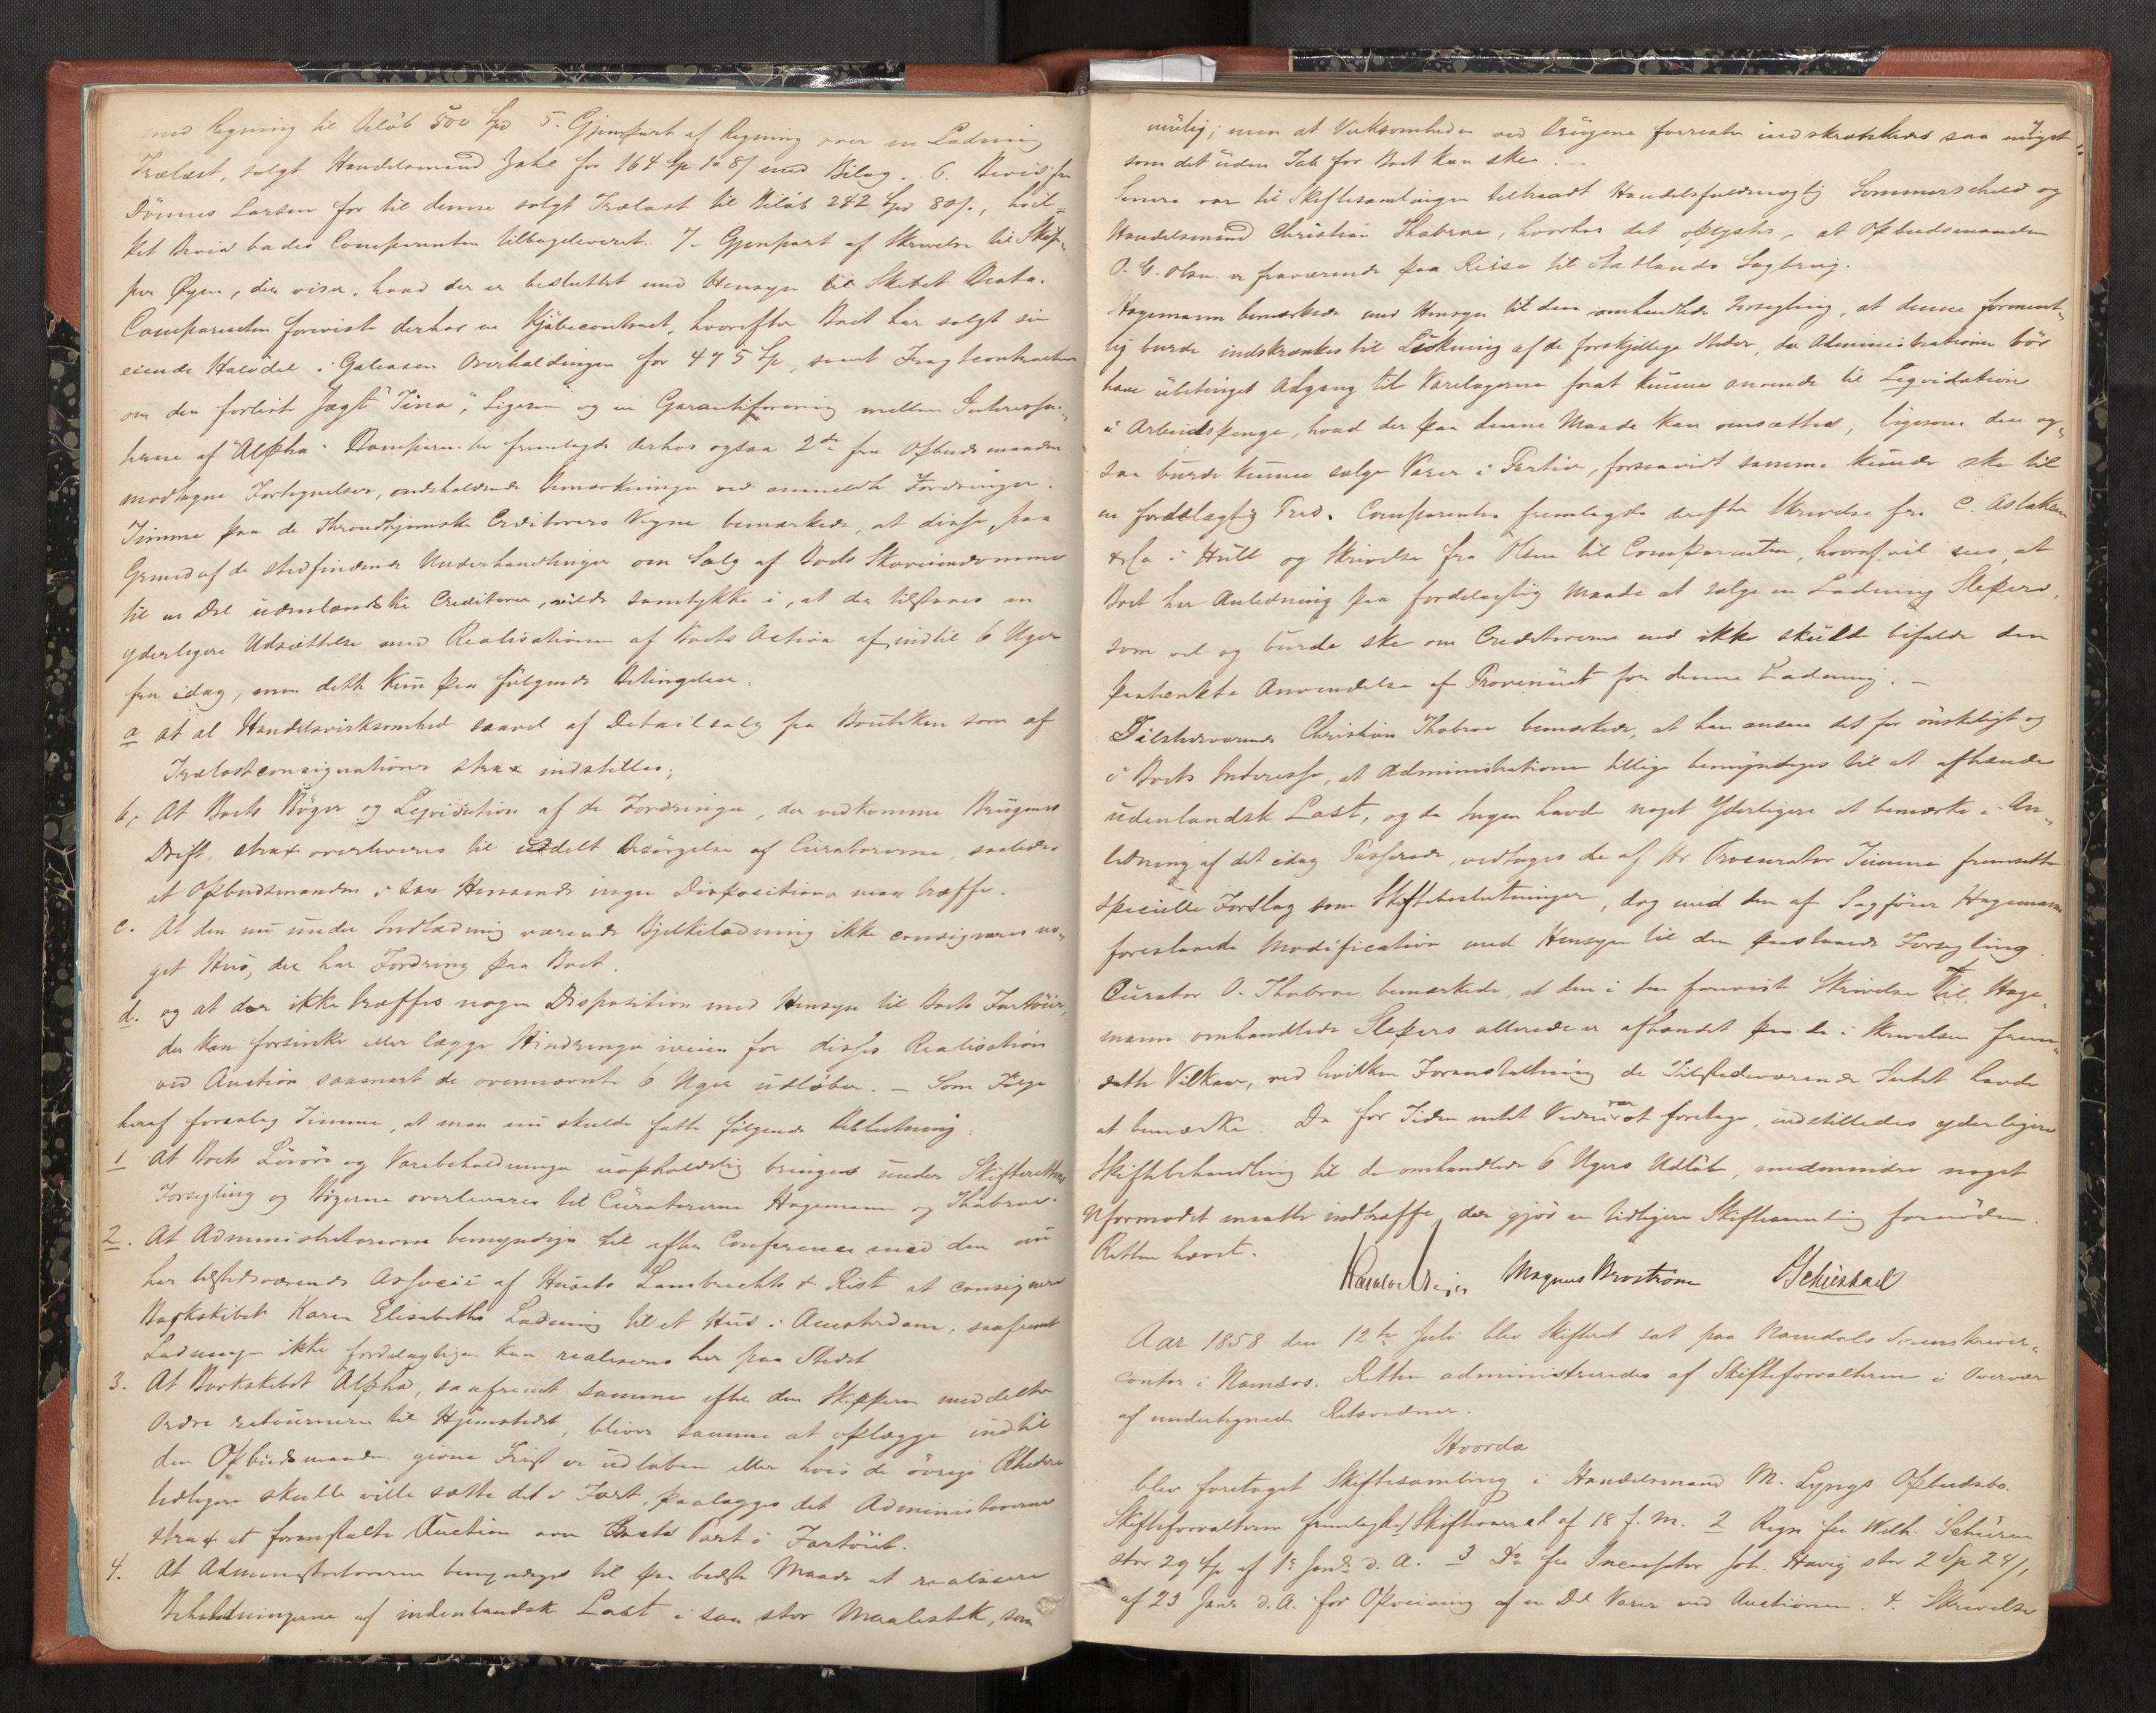 med Regning til Beløb 500 Spd 5. Gjenpart af Regning over en Ladning
Trælast, solgt Handelsmand Zahl for 164 Sp 108/ med Bilag. 6. Bevis fra
Dønnes Larsen for til denne solgt Trælast til Beløb 242 Spd 80/., hvil-
ket Bevis bades Comparenten tilbageleveret. 7. Gjenpart af Skrivelse til Skip-
per Øyen, der viser, hvad der er besluttet med Hensyn til Skibet Beata.
Comparenten foreviste derhos en Kjøbecontract, hvorefter Boet har solgt sin
eiende Halvdel i Galeasen Overhaldingen for 475 Sp, samt Fragtcontracten
om den forliste Jagt "Tina", Ligesen og en Garantiforening mellem Interessen-
terne af "Alpha". Comparenten fremlagde derhos ogsaa 2de fra Opbudsmanden
modtagne Fortegnelser, indeholdende Bemærkninger ved anmeldte Fordringer.
Timme paa de Throndhjemske Creditorers Vegne bemærkede, at disse, paa
Grund af de stedfindende Underhandlinger om Salg af Boets Skoveiendomme
til en Del udenlandske Creditorer, vilde samtykke i, at der tilstaaes en
yderligere Udsættelse med Realisationen af Boets Activa af indtil 6 Uger
fra idag, men dette kun paa følgende Betingelser.
a at al Handelsvirksomhed saavel af Detailsalg fra Boutiken som af
Trælastconsignationer strax indstilles;
b, At Boets Bøger og Liqvidation af de Fordringer, der vedkomme Brugenes
Drift, strax overleveres til udelt Besørgelse af Curatorerne, saaledes
at Opbudsmanden i saa Henseende ingen Dispositioner maa træffe.
c. At den nu under Indladning værende Bjelkeladning ikke consigneres no-
get Hus, der har Fordring paa Boet.
d. og at der ikke træffes nogen Disposition med Hensyn til Boets Fartøier,
der kan forsinke eller lægge Hindringer iveien for disses Realisation
ved Auction saasnart de ovennævnte 6 Uger udløber. – Som Følge
heraf foreslog Timme, at man nu skulde fatte følgende Beslutning:
1 At Boets Løsøre og Varebeholdninger uopholdelig bringes under Skifterettens
Forsegling og Bøgerne overleveres til Curatorerne Hagemann og Thabrae.
2. At Administratorerne bemyndiges til efter Conference med den nu
her tilstedeværende Associé af Huset Lambrechts & Rist at consignere
Barkskibet Karen Elisabeths Ladning til et Hus i Amsterdam, saafremt
Ladningen ikke fordelagtigen kan realiseres her paa Stedet
3. At Barkskibet Alpha, saafremt samme efter den Skipperen meddelte
Ordre retournerer til Hjemstedet, bliver samme at oplægge indtil
den Opbudsmanden givne Frist er udløben eller hvis de øvrige Rhedere
tidligere skulle ville sætte det i Fart, paalægges det Administratorerne
strax at foranstalte Auction over Boets Part i Fartøiet.
4. At Administratorerne bemyndiges til paa bedste Maade at realisere
Beholdningerne af indenlandsk Last i saa stor Maalestok, som
mulig; men at Virksomheden ved Brugene forresten indskrænkes saa meget
som det uden Tab for Boet kan ske. –
Senere var til Skiftesamlingen tiltraadt Handelsfuldmægtig Sommerschield og
Handelsmand Christian Thabrae, hvorhos det oplystes, at Opbudsmanden
O. C. Olsen er fraværende paa Reise til Stadlands Sagbrug.
Hagemann bemærkede med Hensyn til den omhandlede Forsegling, at denne forment-
lig burde indskrænkes til Lukning af de forskjellige Steder, da Administrationen bør
have ubetinget Adgang til Varelagerne forat kunne anvende til Liqvidation
i Arbeidspenge, hvad der paa denne Maade kan omsættes, ligesom den og-
saa burde kunne sælge Varer i Partier, forsaavidt samme kunde ske til
en fordelagtig Pris. Comparenten fremlagde derefter Skrivelse fra C. Aslaksen
& Co i Hull og Skrivelse fra Olsen til Comparenten, hvoraf vil sees, at
Boet har Anledning paa fordelagtig Maade at sælge en Ladning Slepers,
som vel og burde ske om Creditorerne end ikke skulde bifalde den
paatænkte Anvendelse af Provenuet for denne Ladning. –
Tilstedeværende Christian Thabrae bemærkede, at han ansaa det for ønskeligt og
i Boets Interesse, at Administrationen tillige bemyndiges til at afhænde
udenlandsk Last, og da Ingen havde noget Yderligere at bemærke i An-
ledning af det idag Passerede, vedtoges de af Hr Procurator Timme fremsatte
specielle Forslag som Skiftebeslutninger, dog med den af Sagfører Hagemann
foreslaaede Modification med Hensyn til den paastaaede Forsegling.
Curator O. Thabrae bemærkede, at den i den foreviste Skrivelse til Hage-
mann omhandlede Slepers allerede er afhændet paa de i Skrivelsen frem-
satte Vilkaar, ved hvilken Foranstaltning de Tilstedeværende Intet havde
at bemærke. Da for Tiden intet Videre var at foretage, indstilledes yderligere
Skiftebehandling til de omhandlede 6 Ugers Udløb, medmindre noget
Uformodet maatte indtræffe, der gjør en tidligere Skiftesamling fornøden.
Retten hævet.
Magnus Broström
Aar 1858 den 12te Juli blev Skifteret sat paa Namdals Sorenskriver-
contor i Namsos. Retten administreredes af Skifteforvalteren i Overvær
af undertegnede Retsvidner.
Hvorda
blev foretaget Skiftesamling i Handelsmand M. Lyngs Opbudsbo.
Skifteforvalteren fremlagde 1 Skiftevarsel af 18 f. M. 2 Regn fra Wilh. Schiern
stor 29 Sp af 1ste Janr d. A. 3 Do fra Incassator Joh. Havig stor 2 Sp 24/,
af 23 Janr d. A. for Opveining af en Del Varer ved Auctionen. 4. Skrivelse